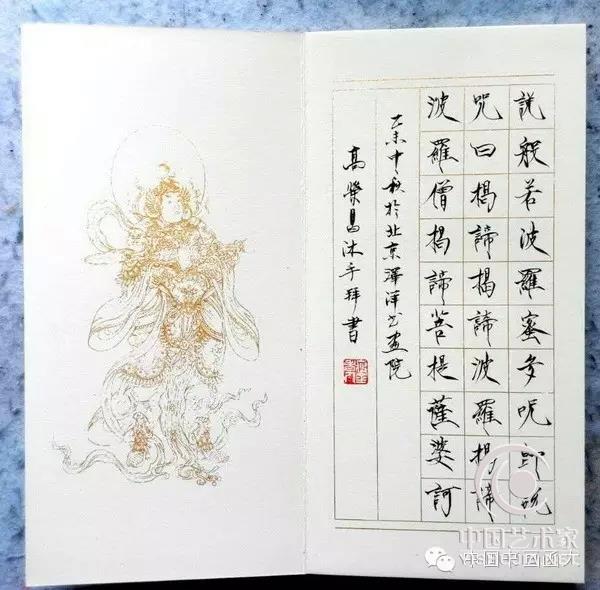 說般若波羅蜜多呪即說
咒曰揭諦揭諦波羅揭諦
波羅僧揭諦菩提薩婆訶
乙未中秋於北京澤洋书画院
高榮昌沐手拜書
中国艺术家